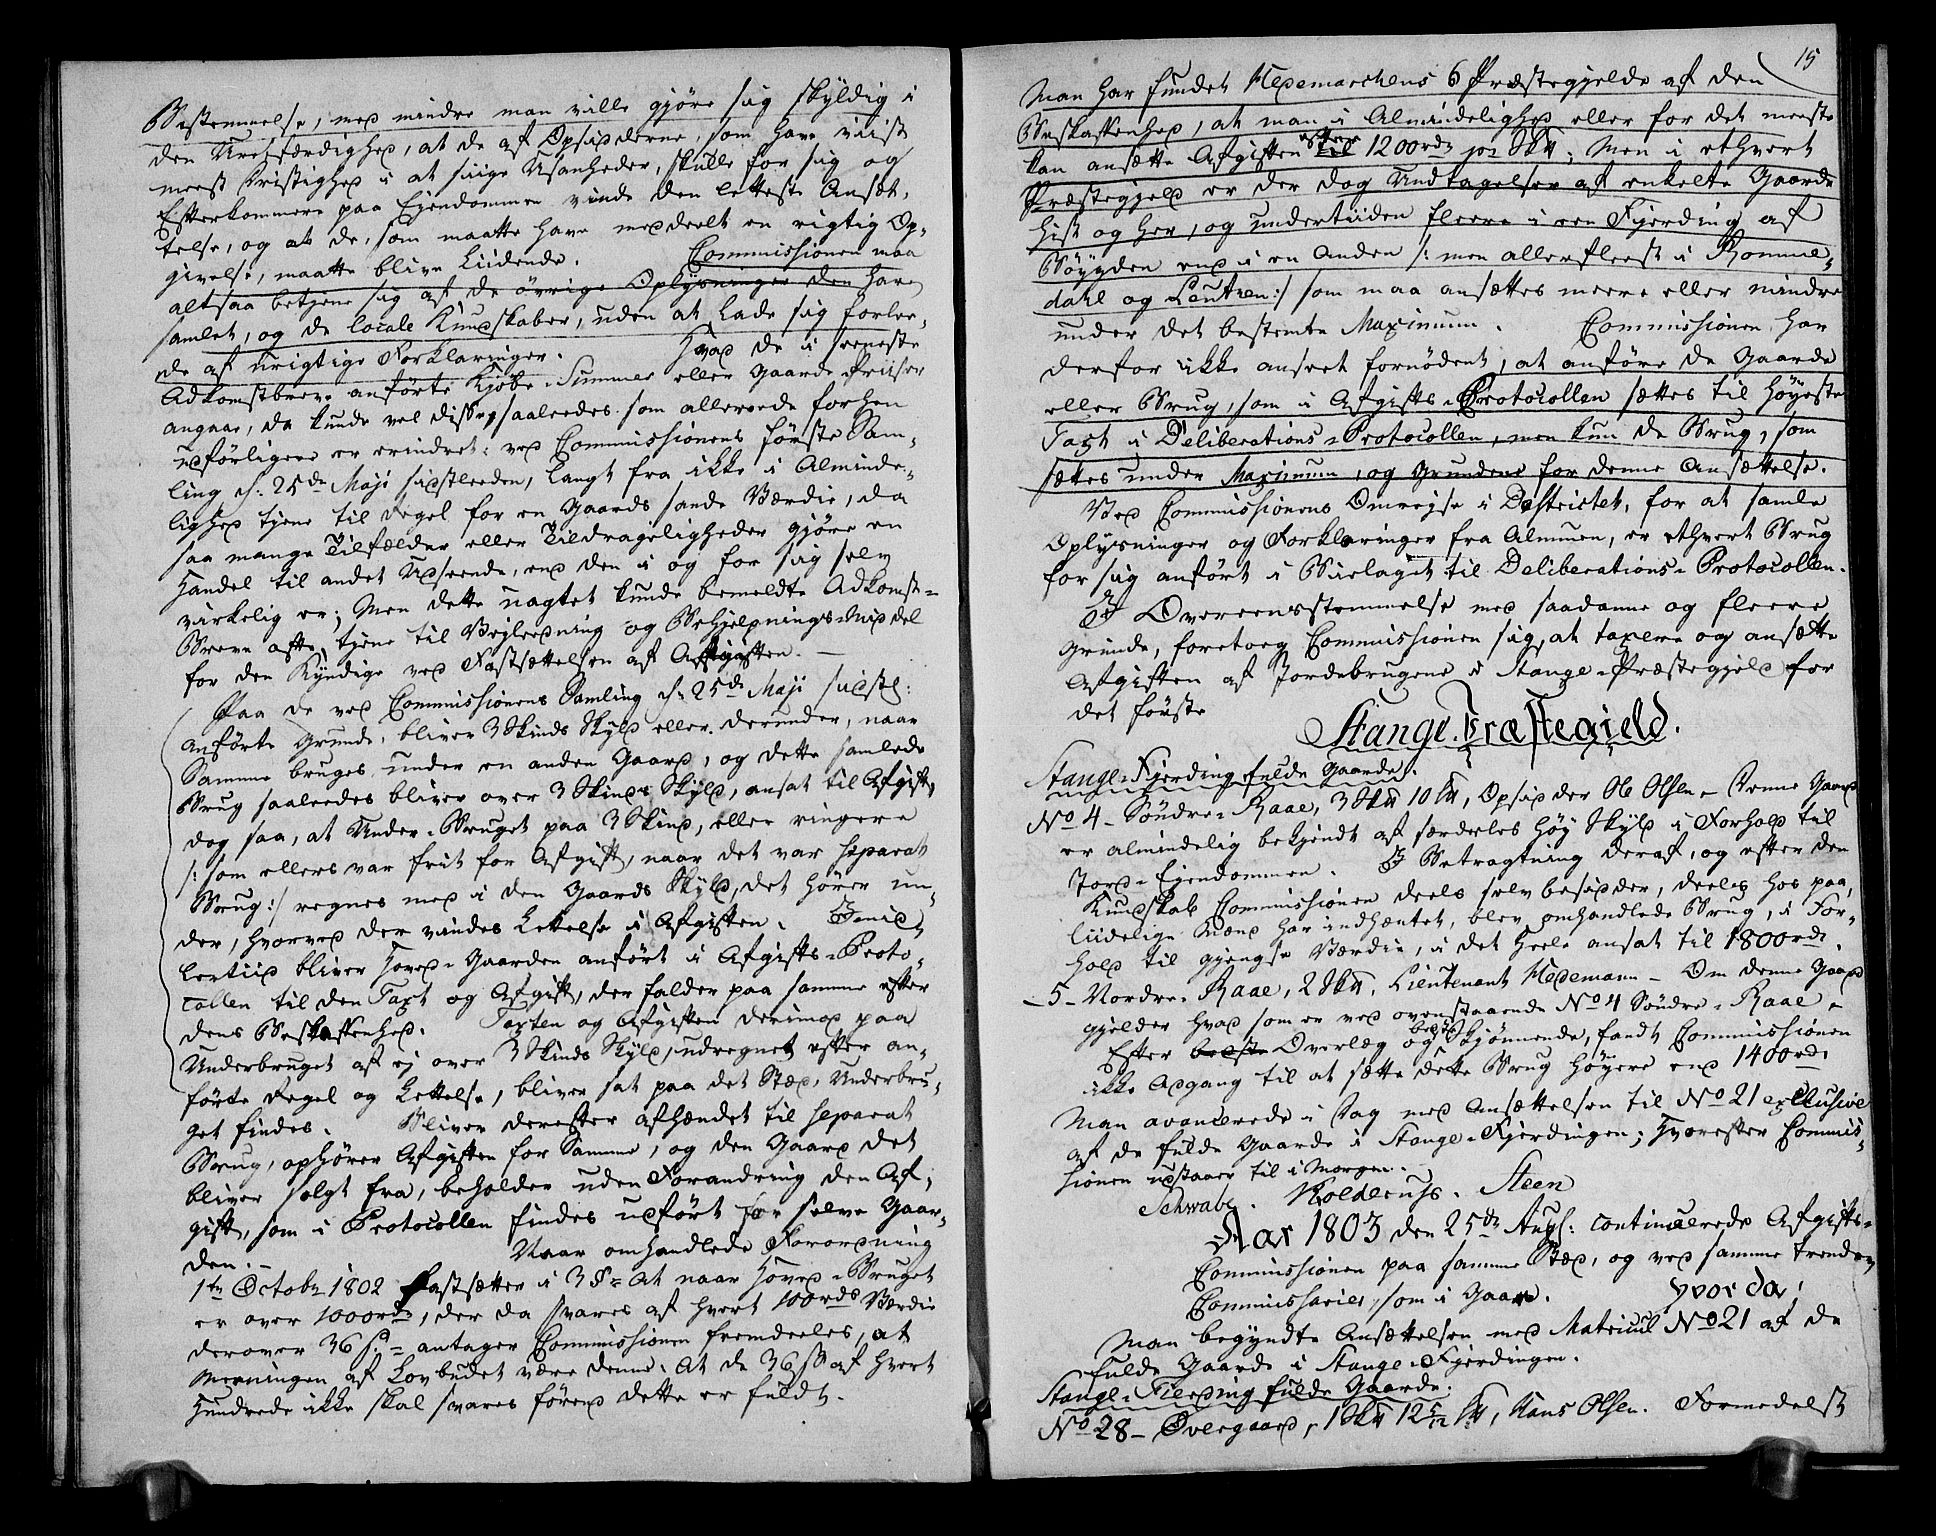 Bestemmelse, med mindre man ville gjøre sig skyldig i
den Uretfærdighed, at de af Opsidderne, som have viist
meest Dristighed i at siige Usanheder, skulle for sig og
Efterkommere paa Ejendommen vinde den letteste Ansæt,
telse, og at de, som maatte have meddeelt en rigtig Op,
givelse, maatte blive Liidende. Commissionen maa
altsaa betjene sig af de øvrige Oplysninger den har
samlet, og de locale Kundskaber, uden at lade sig forlee,
de af urigtige Forklaringer. Hvad de i seeneste
Adkomstbreve anførte Kjøbe-Summer eller Gaarde Priiser
angaar, da kunde vel disse, saaleedes som allereede forhen
udførligere er erindret ved Commissionens første Sam,
ling d. 25de Maji sidstleeden, langt fra ikke i Alminde,
lighed tjene til Regel for en Gaards sande Værdie, da
saa mange Tilfælder eller Tildrageligheder gjøre en
Handel til andet Udseende, end den i og for sig selv
virkelig er; Men dette uagtet kunde bemeldte Adkomst-
Breve ofte tjene til Vejleedning og Behjelpnings-Middel
for den Kyndige ved Fastsættelsen af Afgiften. —
Paa de ved Commissionens Samling d. 25de Maji sidstl:
anførte Grunde, bliver 3 Skinds Skyld eller derunder, naar
Samme bruges under en anden Gaard, og dette samlede
Brug saaleedes bliver over 3 Skinds Skyld, ansat til Afgift,
dog saa, at Under-Bruget paa 3 Skind, eller ringere
/: som ellers var friit for Afgift, naar det var separat
Brug:/ regnes med i den Gaards Skyld, det hører un,
der, hvorved der vindes Lettelse i Afgiften. Imid
lertiid bliver Hoved-Gaarden anført i Afgifts-Proto,
collen til den Taxt og Afgift, der falder paa samme efter
dens Beskaffenhed. Taxten og Afgiften derimod paa
Underbruget af ej over 3 Skinds Skyld, udregnet efter an,
førte Regel og Lettelse, bliver sat paa det Sted, Underbru,
get findes. Bliver derefter afhændet til separat
Brug, ophører Afgiften for Samme, og den Gaard det
bliver solgt fra, beholder uden Forandring den Af,
gift, som i Protocollen findes udført for selve Gaar,
den. — Naar omhandlede Forordning
1te Octobr 1802 fastsætter i 3 § = at naar Hoved-Bruget
er over 1000rdr, der da svares af hvert 100rds Værdie
derover 36 s. = antager Commissionen fremdeeles, at
Meeningen af Lovbudet være denne: At de 36 s af hvert
Hundrede ikke skal svares førend dette er fuldt.
15
Man har fundet Hedemarchens 6 Præstegjelde af den
Beskaffenhed, at man i Almindelighed eller for det meeste
kan ansætte Afgiften efter til 1200rdr pr Skt; Men i ethvert
Præstegjeld er der dog Undtagelser af enkelte Gaarde
hist og her, og undertiiden fleere i een Fjerding af
Bøygden end i en Anden /: men allerfleest i Romme,
dahl og Leuthen:/ som maa ansættes meere eller mindre
under det bestemte Maximum. Commissionen har
derfor ikke anseet fornødent, at anføre de Gaarde
eller Brug, som i Afgifts-Protocollen sættes til høyeste
Taxt i Deliberations-Protocollen, men kun de Brug, som
sættes under Maximum, og Grundene for denne Ansættelse.
Ved Commissionens Omrejse i Districtet, for at samle
Oplysninger og Forklaringer fra Almuen, er ethvert Brug
for sig anført i Bielaget til Deliberations-Protocollen.
I Overeensstemmelse med saadanne og fleere
Grunde, foretoeg Commissionen sig, at taxere og ansætte
Afgiften af Jordebrugene i Stange-Præstegjeld for
det første
Stange-Præstegield.
Stange-Fjerding fulde Gaarde.
No 4 - Søndre-Raae, 3 Skt 10 Lt, Opsidder Ole Olsen - Denne Gaard
er almindelig bekjendt af særdeles høy Skyld i Forhold til
Jord-Ejendommen. I Betragtning deraf, og efter den
Kundskab Commissionen deels selv besidder, deels hos paa,
liidelige Mænd har indhæntet, blev omhandlede Brug, i For,
hold til gjængse Værdie, i det heele ansat til 1800rdr.
- 5 - Nordre-Raae, 2 Skt. Lieutenant Hedemann - Om denne Gaard
gjelder hvad som er ved ovenstaaende No 4 Søndre-Raae -
Efter bedste Overlæg og bedste Skjønnende, fandt Commissionen
ikke Adgang til at sætte dette Brug høyere end 1400rdr
Man avancerede i Dag med Ansættelsen til No 21 exclusive
af de fulde Gaarde i Stange-Fjerdingen; hvorefter Commis,
sionen udstaaer til i Morgen.
Schwabe. Kolderup. Steen
Aar 1803 den 25de Aug: continuerede Afgifts-
Commissionen paa samme Sted, og ved samme trende
Commissarier, som i Gaar. Hvor da:
Man begyndte Ansættelsen med Matricul No 21 af de
fulde Gaarde i Stange-Fjerdingen.
Stange-Fierding fulde Gaarde.
No 28 - Øvergaard, 1 Skt 12 Lt, Hans Olsen. Formedelst